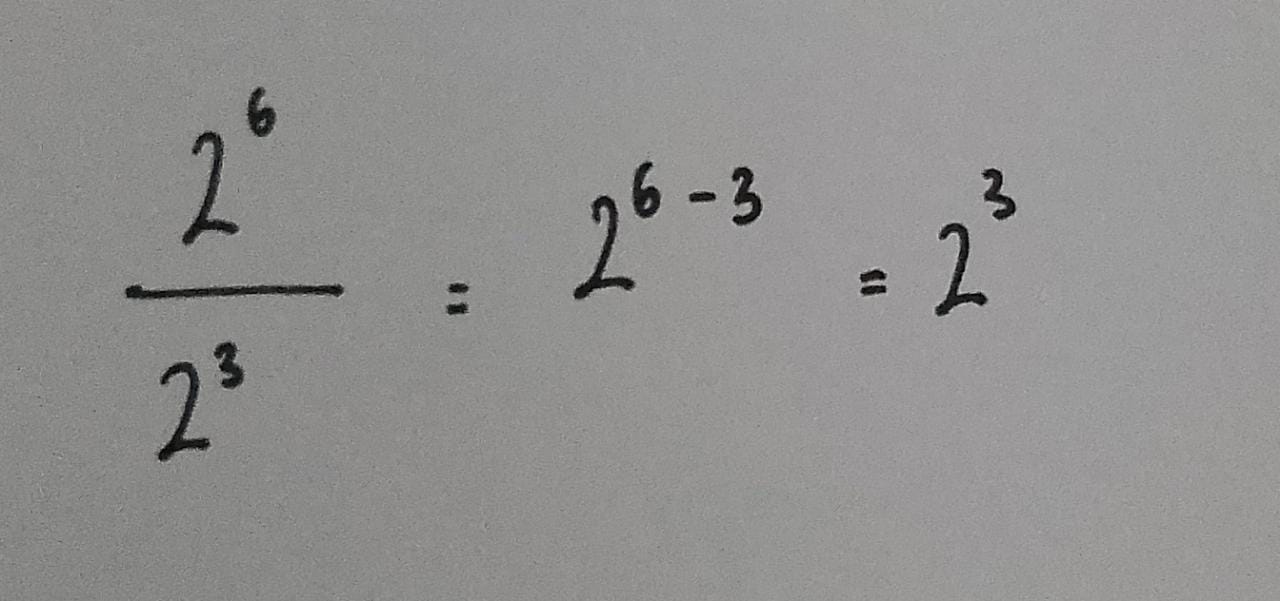 2⁶/2³ = 2⁶⁻³ = 2³